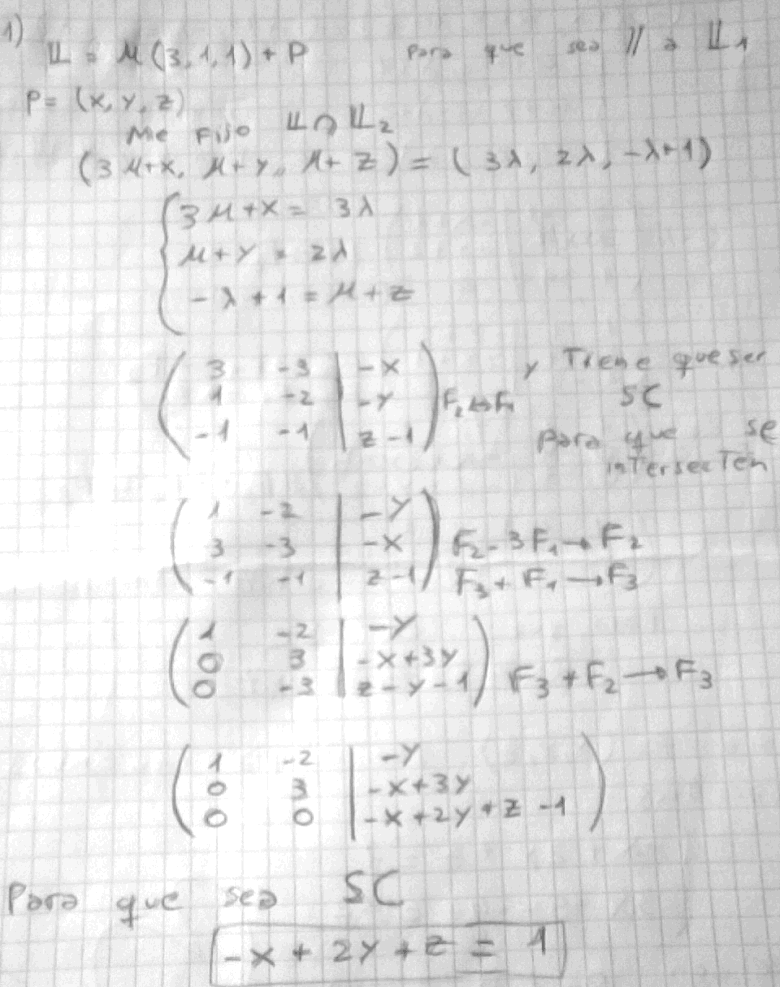 1)
𝕃 = μ(3,1,1) + P para que sea // a 𝕃1
P = (x, y, z)
Me fijo 𝕃 ∩ 𝕃2
(3μ+x, μ+y, μ+z) = (3λ, 2λ, -λ+1)
3μ+x = 3λ
μ+y = 2λ
-λ+1 = μ+z
3 -3 | -x y Tiene que ser
1 -2 | -y F2↔F1 SC
-1 -1 | z-1 para que se
intersecten
1 -2 | -y
3 -3 | -x F2-3F1→F2
-1 -1 | z-1 F3+F1→F3
1 -2 | -y
0 3 | -x+3y
0 -3 | z-y-1 F3+F2→F3
1 -2 | -y
0 3 | -x+3y
0 0 | -x+2y+z-1
Para que sea SC
-x + 2y + z = 1